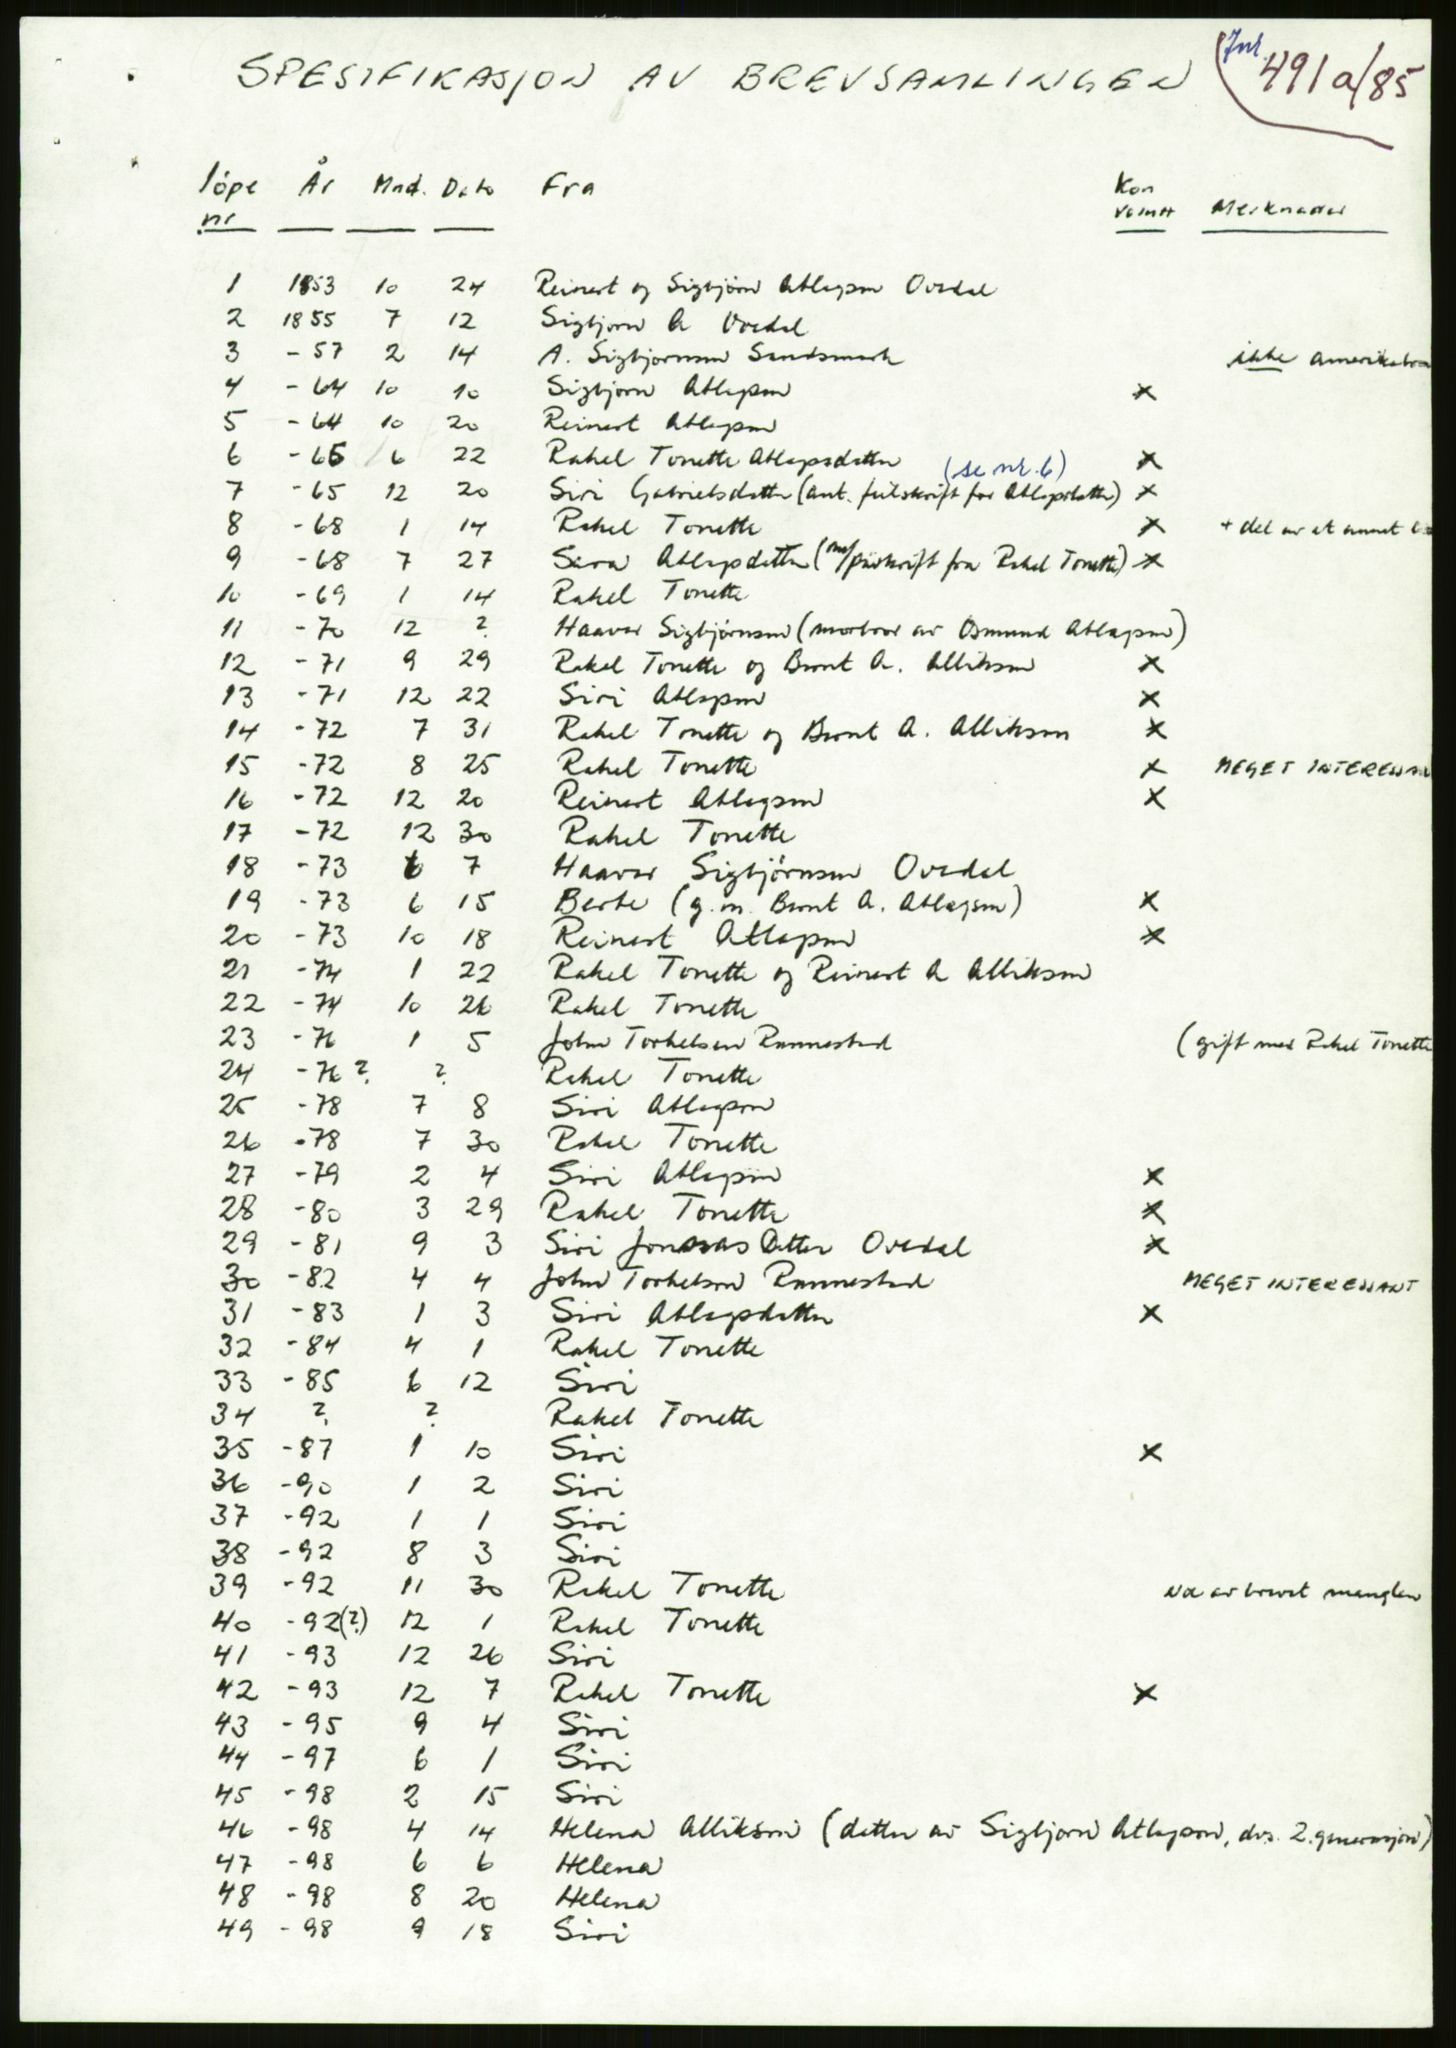 SPESIFIKASJON AV BREVSAMLINGEN
Jnr. 491 a/85
løpe År Mnd. Dato Fra Kon Merknader
nr volutt
1 1853 10 24 Reinert og Sigbjørn Atlagsen Ovedal
2 1855 7 12 Sigbjørn A Ovedal
3 - 57 2 14 A. Sigbjørnsen Sandsmark ikke amerikabrev
4 - 64 10 10 Sigbjørn Atlagsen x
5 - 64 10 20 Reinert Atlagsen
6 - 65 6 22 Rakel Tonette Atlagsdatter x
(se nr. 6)
7 - 65 12 20 Siri Gabrielsdatter (ant. feilskrift for Atlagsdatter) x
8 - 68 1 14 Rakel Tonette x + del av et annet
9 - 68 7 27 Sara Atlagsdatter (m/påskrift fra Rakel Tonette) x
10 - 69 1 14 Rakel Tonette
11 - 70 12 ? Haavar Sigbjørnsen (morbror av Osmund Atlagsen)
12 - 71 9 29 Rakel Tonette og Bernt A. Allikson x
13 - 71 12 22 Siri Atlagsen x
14 - 72 7 31 Rakel Tonette og Bernt A. Allikson x
15 - 72 8 25 Rakel Tonette x MEGET INTERESSAN
16 - 72 12 20 Reinert Atlagsen x
17 - 72 12 30 Rakel Tonette
18 - 73 6 7 Haavar Sigbjørnsen Ovedal
19 - 73 6 15 Berte (g.m. Bernt A. Atlagsen) x
20 - 73 10 18 Reinert Atlagsen x
21 - 74 1 22 Rakel Tonette og Reinert A Allikson
22 - 74 10 26 Rakel Tonette
23 - 76 1 5 John Torkelsen Rannestad (gift med Rakel Tonette
24 - 76 ? ? Rakel Tonette
25 - 78 7 8 Siri Atlagsen
26 - 78 7 30 Rakel Tonette
27 - 79 2 4 Siri Atlagsen x
28 - 80 3 29 Rakel Tonette x
29 - 81 9 3 Siri Jonasas Datter Ovedal x
30 - 82 4 4 John Torkelson Rannestad MEGET INTERESSANT
31 - 83 1 3 Siri Atlagsdatter x
32 - 84 4 1 Rakel Tonette
33 - 85 6 12 Siri
34 ? ? Rakel Tonette
35 - 87 1 10 Siri x
36 - 90 1 2 Siri
37 - 92 1 1 Siri
38 - 92 8 3 Siri
39 - 92 11 30 Rakel Tonette av brevet mangler
40 - 92(?) 12 1 Rakel Tonette
41 - 93 12 26 Siri
42 - 93 12 7 Rakel Tonette x
43 - 95 9 4 Siri
44 - 97 6 1 Siri
45 - 98 2 15 Siri
46 - 98 4 14 Helena Allikson (datter av Sigbjørn Atlagson, dvs. 2. generasjon)
47 - 98 6 6 Helena
48 - 98 8 20 Helena
49 - 98 9 18 Siri